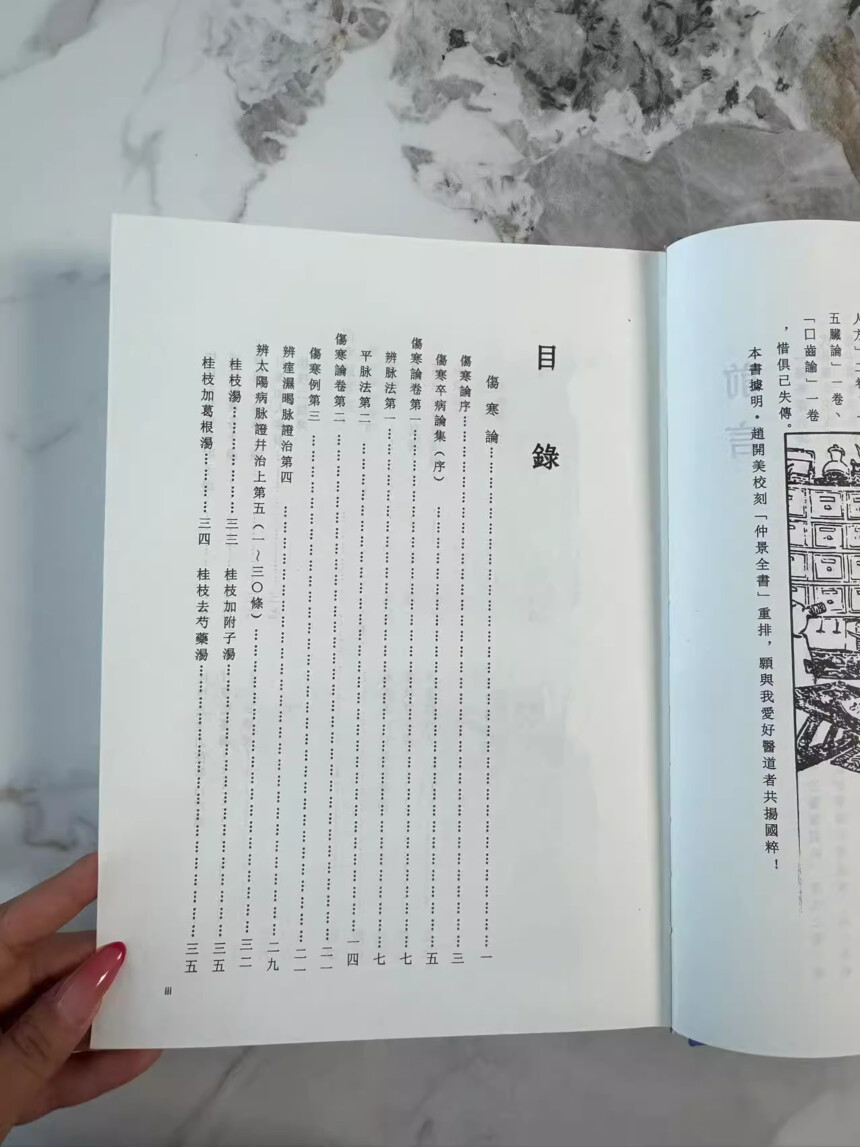 五臟論」一卷、
「口齒論」一卷
，惜俱己失傳。
本書據明・趙開美校刻「仲景全書」重排，願與我愛好醫道者共揚國粹！
目錄
傷寒論……一
傷寒論序……三
傷寒卒病論集（序）……五
傷寒論卷第一……七
辨脉法第一……七
平脉法第二……一四
傷寒論卷第二……二一
傷寒例第三……二一
辨痙濕暍脉證治第四……二九
辨太陽病脉證幷治上第五（一～三〇條）……三二
桂枝湯……三三 桂枝加附子湯……三五
桂枝加葛根湯……三四 桂枝去芍藥湯……三五
iii